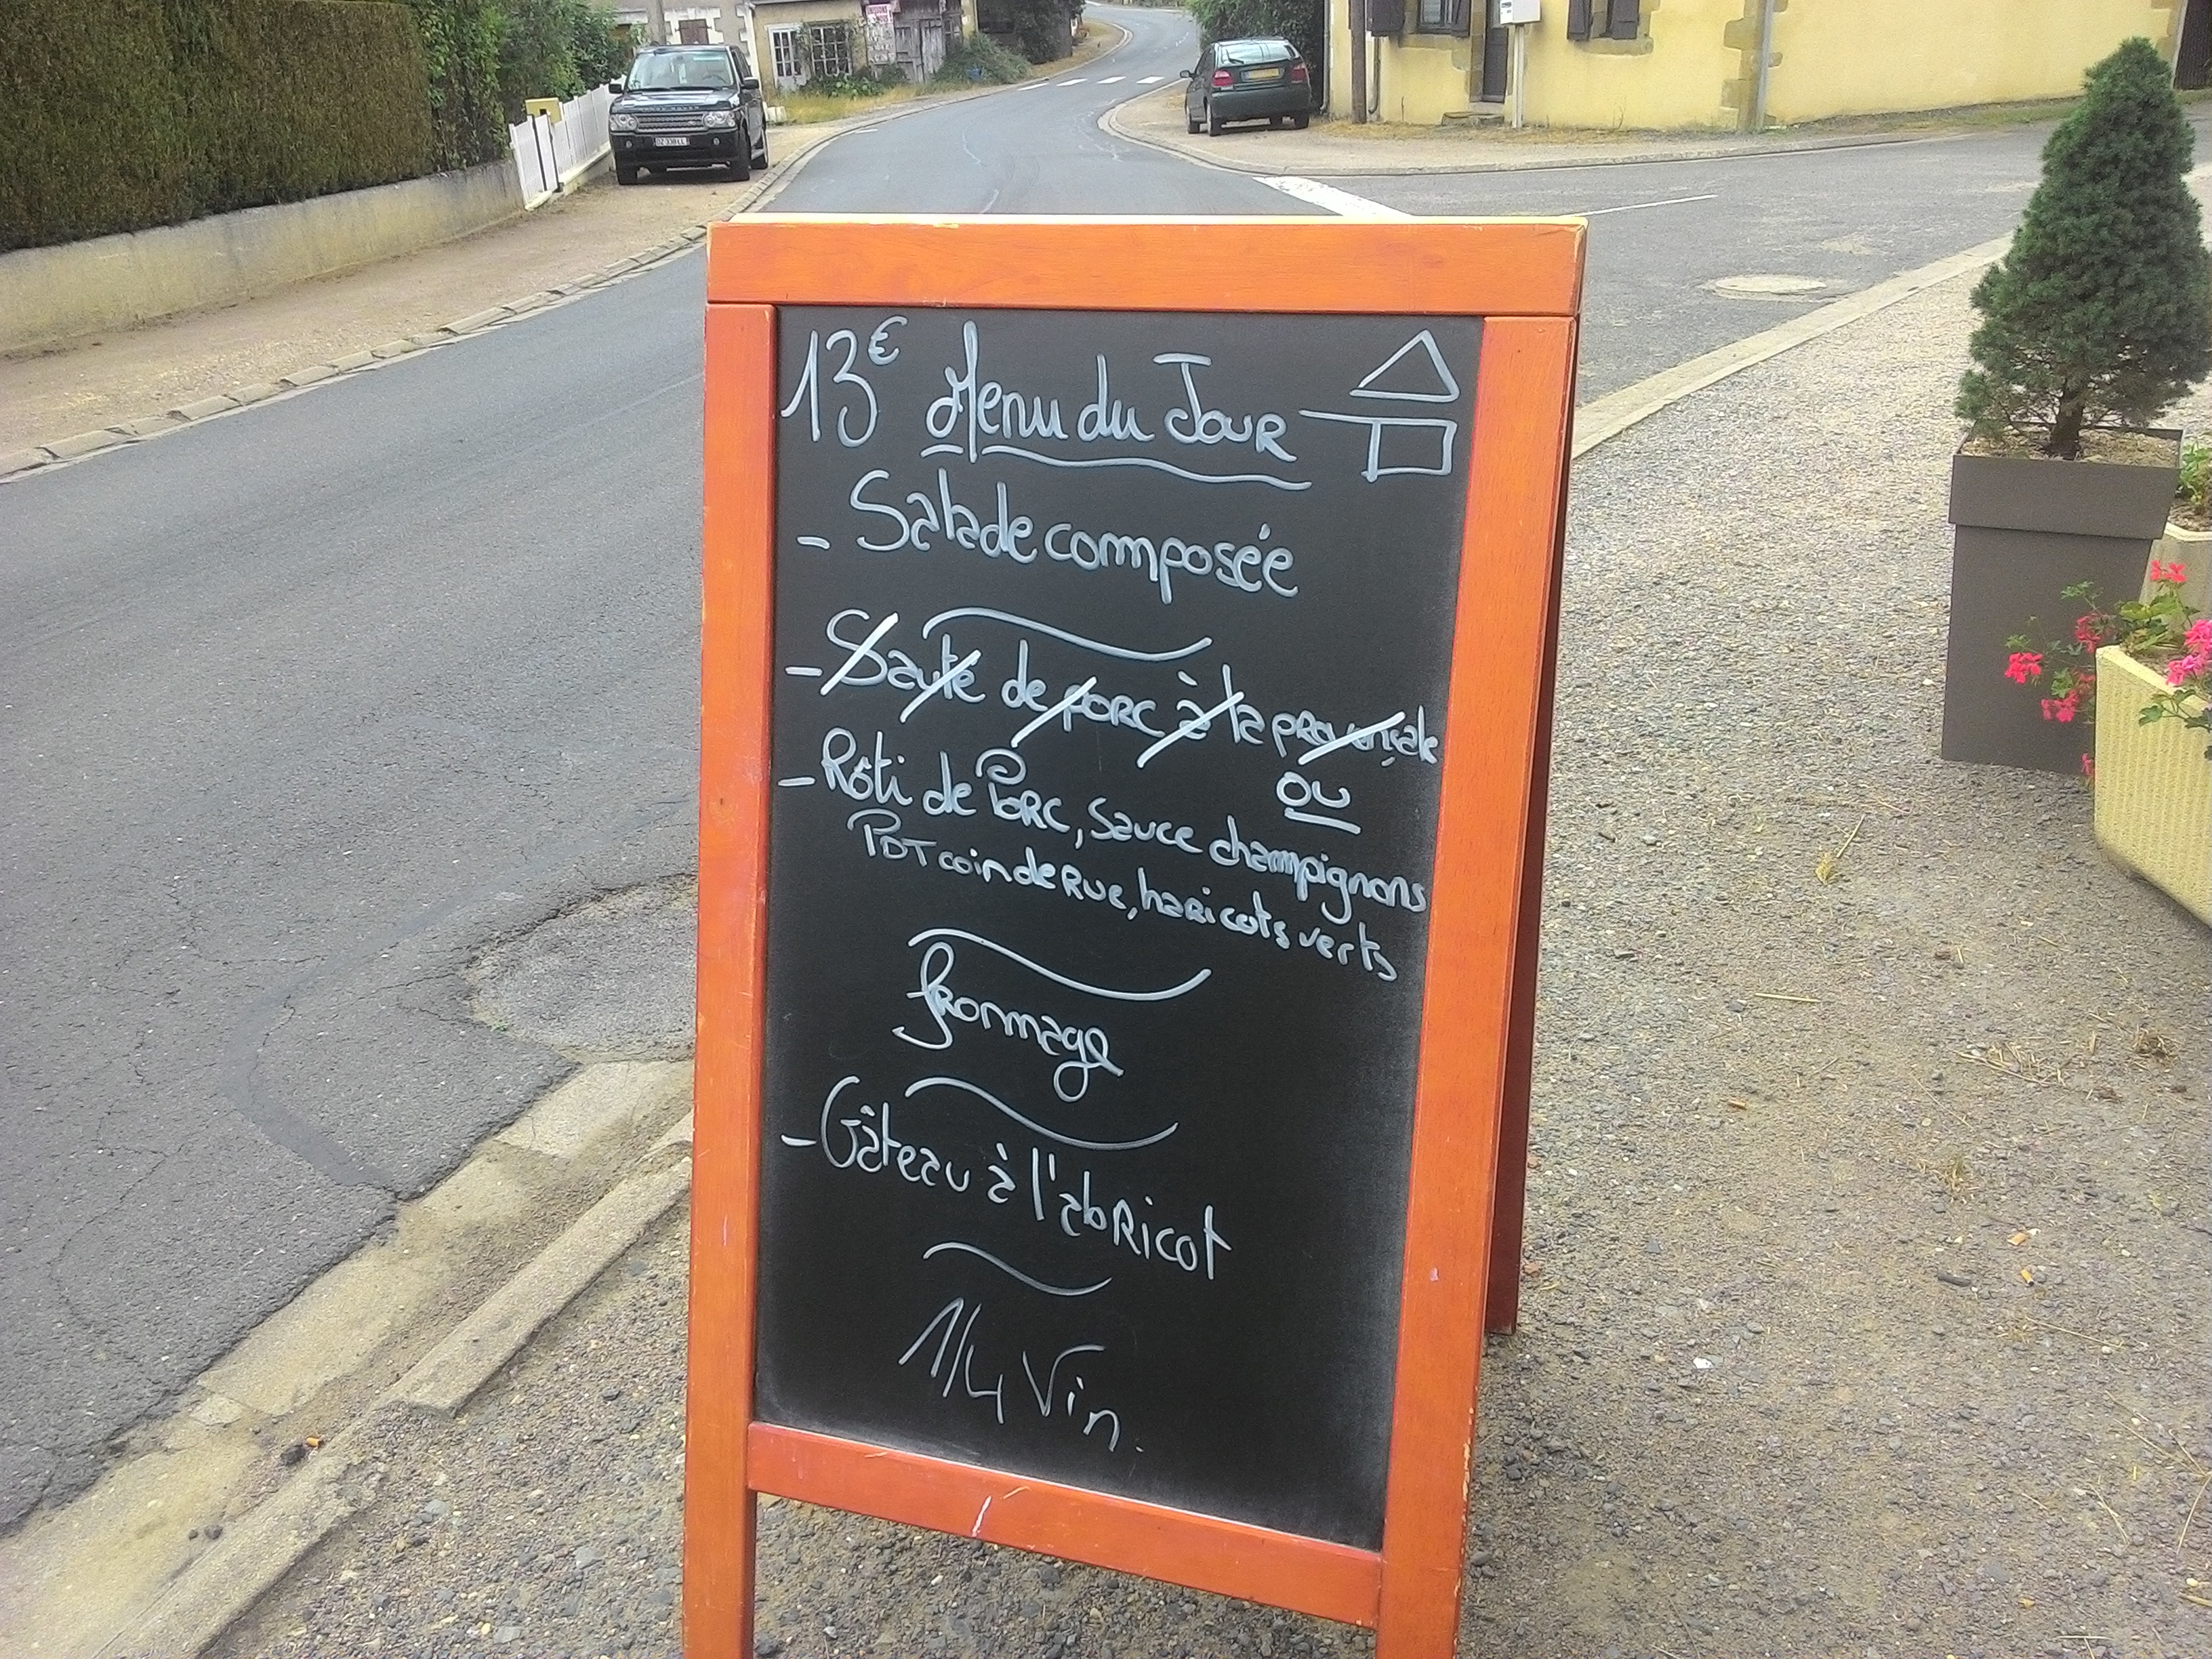 13€ Menu du Jour
- Salade composée
- Sauté de porc à la provençale
ou
- Rôti de Porc, sauce champignons
PDT coin de Rue, haricots verts
fromage
- Gâteau à l'abricot
1/4 Vin.